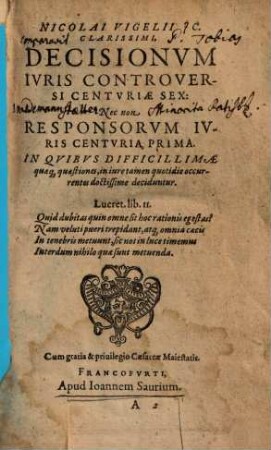 NICOLAI VIGELII, IC.
CLARISSIMI,
Comparavit P. Tobias
DECISIONVM
IVRIS CONTROVER-
SI CENTVRIÆ SEX:
Nec non
Minorita Ratisb.
RESPONSORVM IV-
RIS CENTVRIA PRIMA.
IN QVIBVS DIFFICILLIMÆ
quæq, quæstiones, in iure tamen quotidie occur-
rentes doctissime deciduntur.
Lucret. lib. II.
Quid dubitas quin omne sit hoc rationis egestas?
Nam veluti pueri trepidant, atq, omnia cæcis
In tenebris metuunt, sic nos in luce timemus
Interdum nihilo quæ sunt metuenda.
Cum gratia & privilegio Cæsareæ Maiestatis.
FRANCOFVRTI,
Apud Ioannem Saurium.
A 2